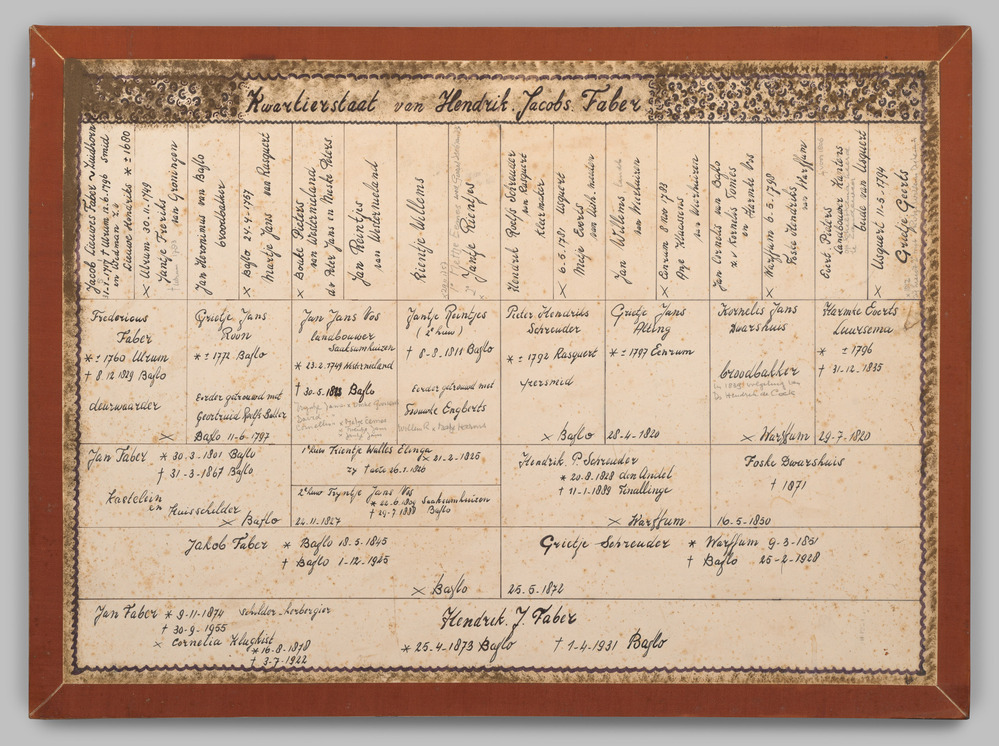 Kwartierstaat van Hendrik. Jacobs. Faber
Jacob Lieuwes Faber ~ Zuidhorn
11-1-1717 † Ulrum 12-6-1796 Smid
en Wedman z.v.
Lieuwe Hendriks * ± 1680
× Ulrum 30-11-1749
Jantje Freriks
van Groningen
Jan Heronimus van Baflo
broodbakker
× Baflo 24-4-1757
Martje Jans van Rasquert
Bouke Pieters
van Westernieland
dv Peter Jans en Meske Peters
Jan Reintjes
van Westernieland
Rientje Willems
2e Jantje Rientjes
Hendrik Roelfs Schreuder
van Rasquert
Kleermaker
× 6-5-1781 Usquert
Meije Everts
Jan Willems
van Wierhuizen
× Eenrum 8 nov 1783
Anje Klaassens
van Wierhuizen
Jan Cornelis van Baflo
z.v Kornelis Tomes
en Harmke Vos
× Warffum 6-5-1798
Foske Hendriks
van Warffum
Evert Pieters
Landbouwer Hunters
beide van Usquert
× Usquert 11-5-1794
Grietje Geerts
Fredericus
Faber
* ± 1760 Ulrum
† 8.12 1829 Baflo
deurwaarder
×
Grietje Jans
Roon
* ± 1772 Baflo
Eerder getrouwd met
Geertruid Roelfs Balter
Baflo 11-6-1797
Jan Jans Vos
landbouwer
Saaksumhuizen
* 23-2-1749 Westernieland
† 30-5-1823 Baflo
Jantje Reintjes
(2e huw)
† 8-8-1811 Baflo
Eerder getrouwd met
Trouwke Engberts
Peter Hendriks
Schreuder
* ± 1792 Rasquert
IJzersmid
× Baflo
Grietje Jans
Alting
* ± 1797 Eenrum
28-4-1820
Kornelis Jans
Dwarshuis
broodbakker
Ds Hendrik de Cock
× Warffum
Harmke Everts
Luursema
* ± 1796
† 31-12-1835
29-7-1820
Jan Faber * 30-3-1801 Baflo
† 31-3-1867 Baflo
Kastelein
en Huisschilder
× Baflo
1e huw Rientje Waltes Elinga
× 21-2-1825
zij † acte 26-1-1826
2e huw Trijntje Jans Vos
* 22-6-1804 Saaksumhuizen
† 29-7 1888 Baflo
24-11-1827
Hendrik P. Schreuder
* 20-8-1828 den Andel
† 11-1-1889 Tinallinge
× Warffum
Foske Dwarshuis
† 1871
16-5-1850
Jakob Faber * Baflo 18-5-1845
† Baflo 1-12-1925
× Baflo
Grietje Schreuder * Warffum 9-3-1851
† Baflo 25-2-1928
25-5-1872
Jan Faber * 9-11-1874 schilder-herbergier
† 30-9-1955
× Cornelia Klugkist
* 16-8-1878
† 3-7-1922
Hendrik J. Faber
* 25-4-1873 Baflo † 1-4-1931 Baflo